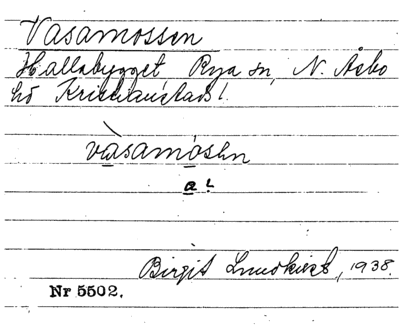 Vasamossen
Hallabygget Rya sn, N. Åsbo
hd Kristianstads l.
vàsamósən
a!
Birgit Lundkvist, 1938.
Nr 5502.